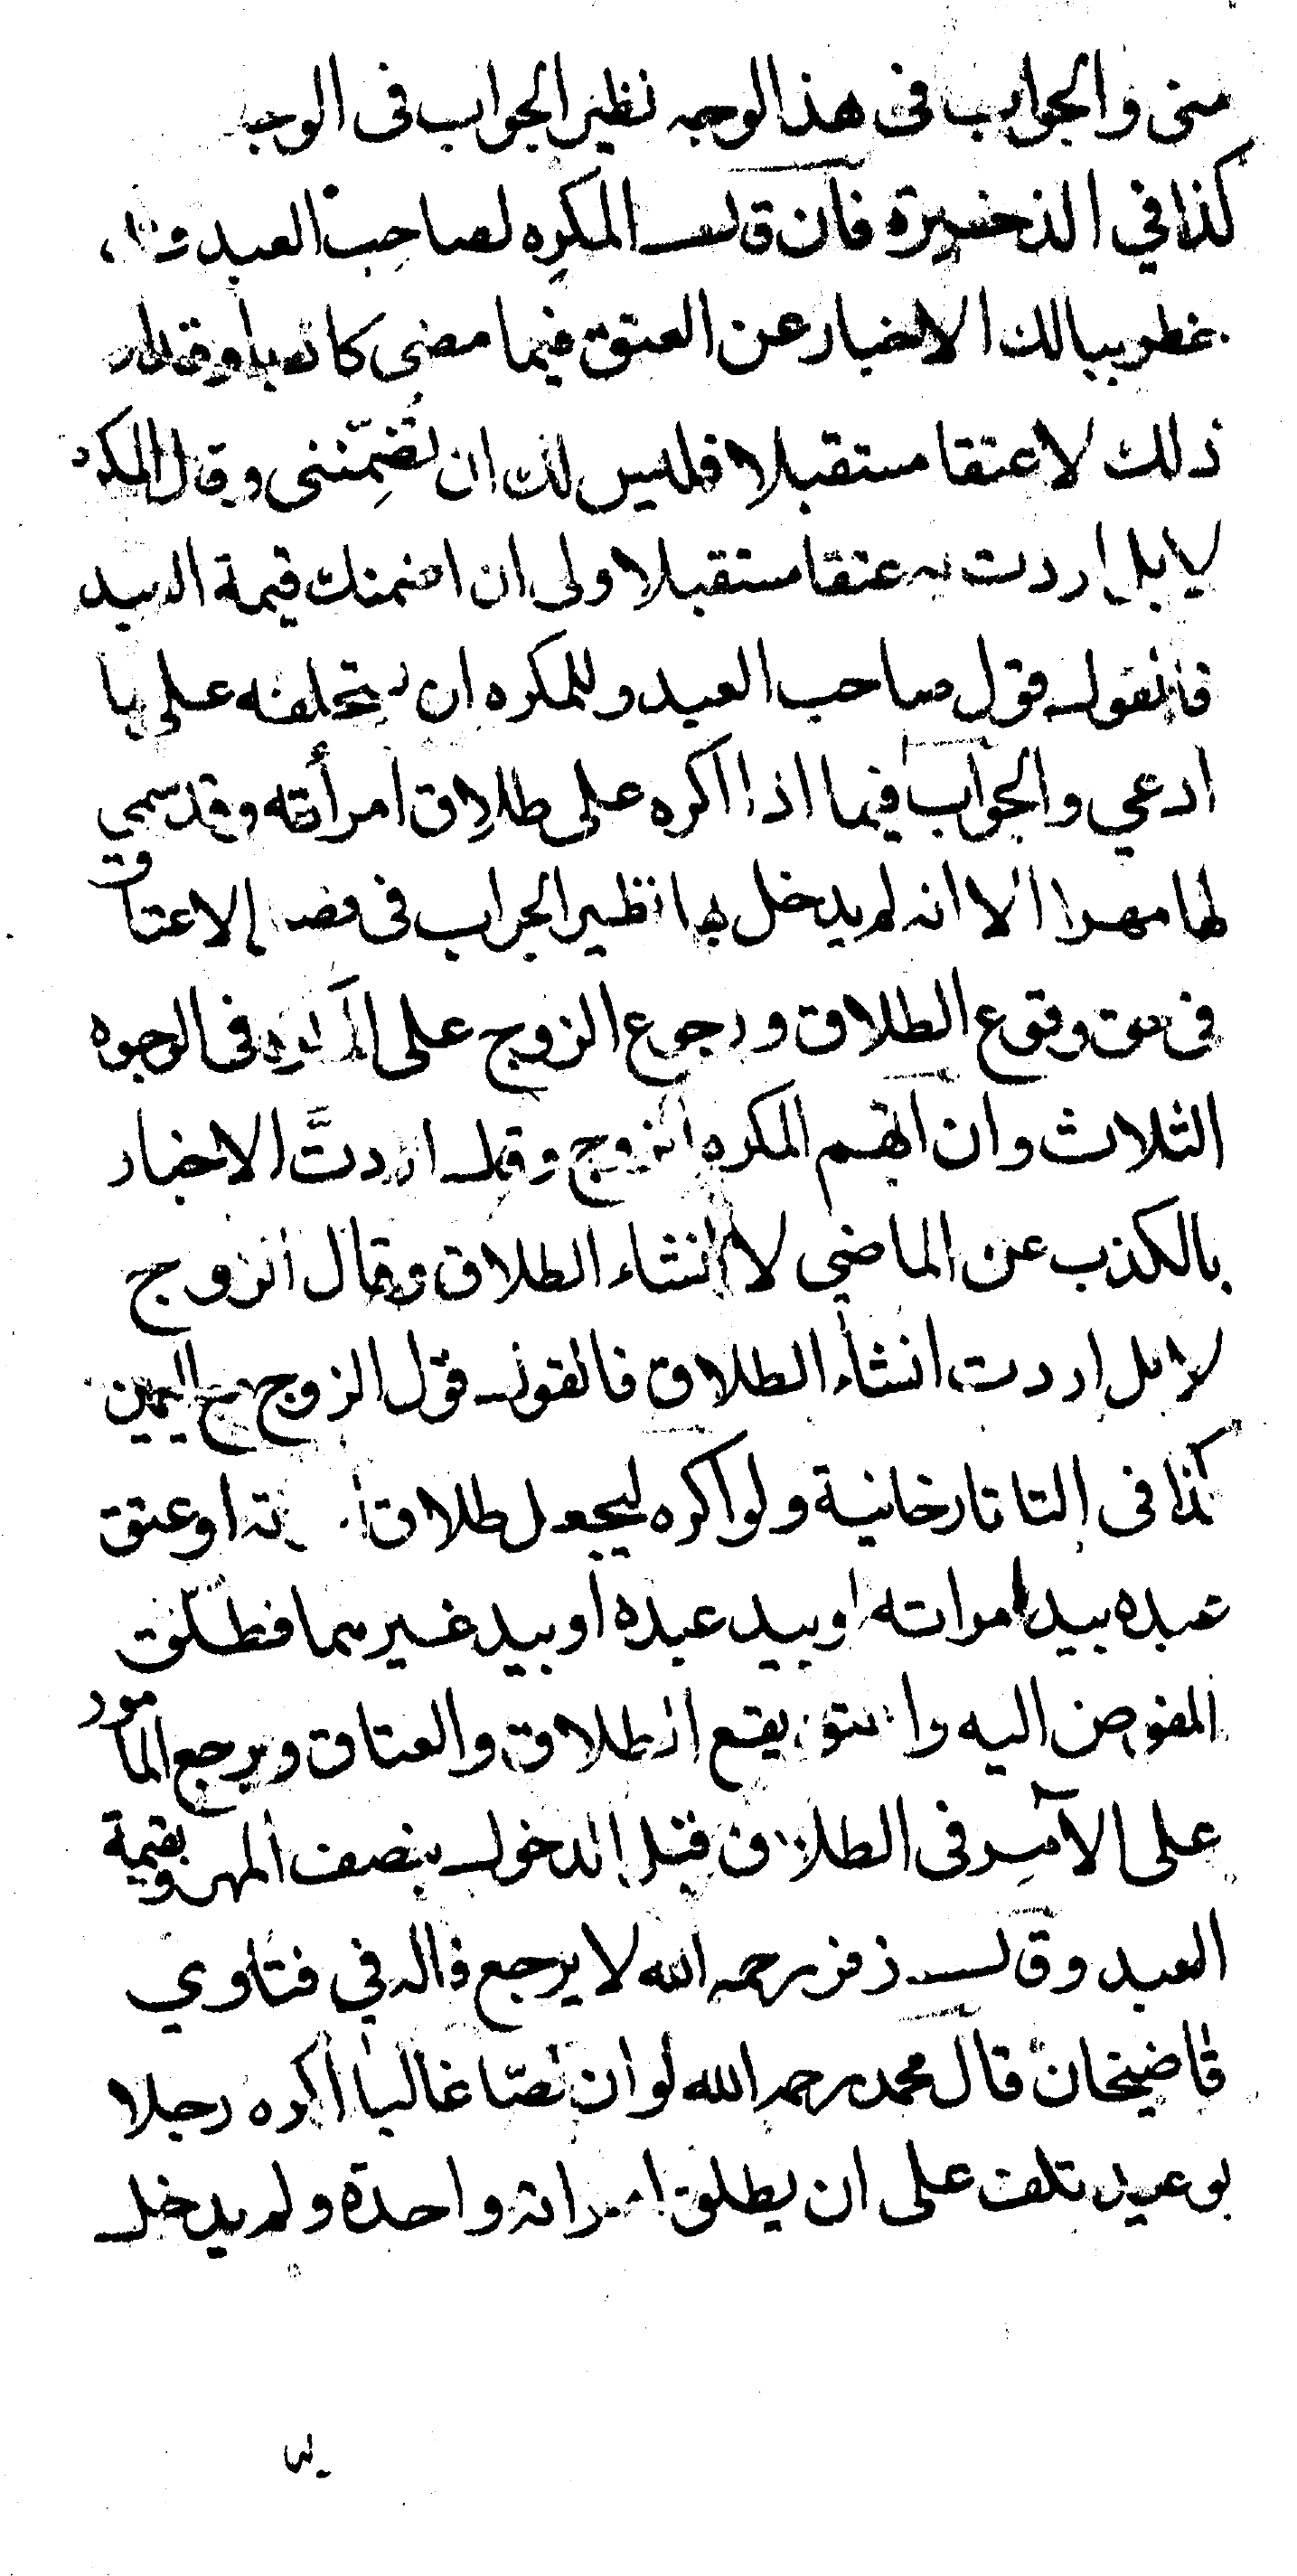 منى والجواب في هذا الوجه نظير الجواب فى الوجه
كذا في الذخيرة فان قال المكره لصاحب العبد
خطر ببالك الاخبار عن العتق فيما مضى كاذبا وقد اردت
ذلك لا عتقا مستقبلا فليس لك ان تضمّننى وقال المكره
لا بل اردت به عتقا مستقبلا ولى ان اضمنك قيمة العبد
فالقول قول صاحب العبد وللمكره ان يستحلفه على ما
ادعي والجواب فيما اذا اكره على طلاق امرأته وقد سمى
لها مهرا الا انه لم يدخل بها نظير الجواب فى فصل الاعتاق
فى حق وقوع الطلاق ورجوع الزوج على المكره فى الوجوه
الثلاث وان اتهم المكره الزوج وقال اردتَّ الاخبار
بالكذب عن الماضي لا انشاء الطلاق وقال الزوج
لا بل اردت انشاء الطلاق فالقول قول الزوج مع اليمين
كذا فى التاتارخانية ولو اكره ليجعل طلاق امرأته او عتق
عبده بيد امراته او بيد عبده او بيد غيرهما فطلق
المفوض اليه واعتق يقع الطلاق والعتاق ويرجع المأمور
على الآمر فى الطلاق قبل الدخول بنصف المهر وبقيمة
العبد وقال زفر رحمه الله لا يرجع قاله في فتاوي
قاضيخان قال محمد رحمه الله لو ان لصّا غالبا اكره رجلا
بوعيد تلف على ان يطلق امراته واحدة ولم يدخل